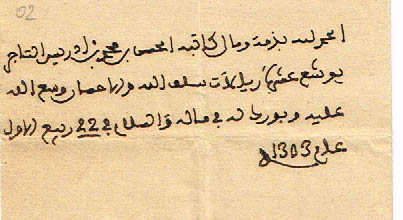 02
الحمد لله بذمة ومال كاتبه الحسن بن محمد بن ادريس التاجر
عشر ريالات سلف الله والاحسان وسع الله
عليه وبورك له في ماله والسلام في 22 ربيع الاول
عام 1303